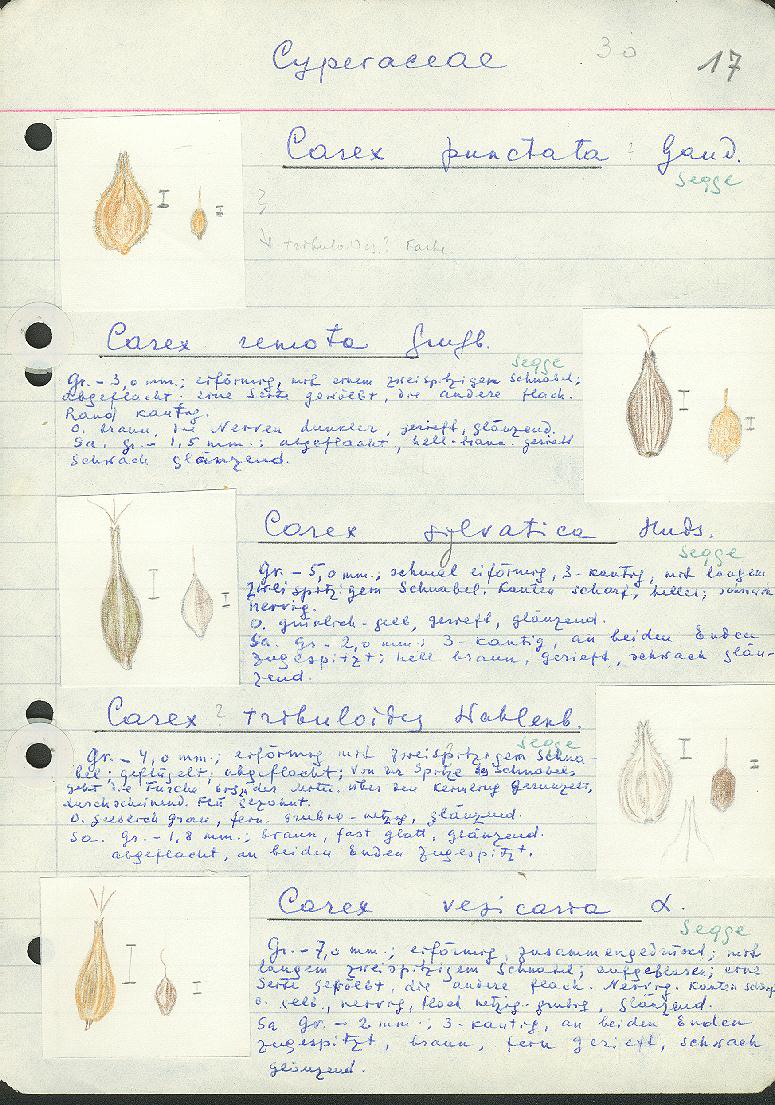 Cyperaceae
30
17
Carex punctata ? Gaud.
Segge
?
tribuloides? Farbe
Carex remota Grufb.
Segge
Gr. - 3,0 mm.; eiförmig, mit einem zweispitzigem Schnabel;
abgeflacht: eine Seite gewölbt, die andere flach.
Rand kantig.
O. braun, Nerven dunkler, gerieft, glänzend.
Sa. gr. - 1,5 mm.; abgeflacht, hell-braun. gerieft
schwach glänzend.
Carex sylvatica Huds.
Segge
Gr. - 5,0 mm.; schmal eiförmig, 3-kantig, mit langem
zweispitzigem Schnabel. Kanten scharf, heller;
nervig.
O. grünlich-gelb, gerieft, glänzend.
Sa. Gr. - 2,0 mm.; 3-kantig, an beiden Enden
zugespitzt; hell braun, gerieft, schwach glän-
zend.
Carex ? tribuloides Wahlenb.
Segge
Gr. - 4,0 mm.; eiförmig mit zweispitzigem Schna-
bel; geflügelt; abgeflacht; von der Spitze des Schnabels
geht die Furche bis zu der Mitte. über den Kern
durchscheinend. gezähnt.
O. gelblich grau, fein grubig-netzig, glänzend.
Sa. Gr. - 1,8 mm.; braun, fast glatt, glänzend.
abgeflacht, an beiden Enden zugespitzt.
Carex vesicaria L.
Segge
Gr. - 7,0 mm.; eiförmig, zusammengedrückt; mit
langem zweispitzigem Schnabel; aufgeblasen; eine
Seite gewölbt, die andere flach. Nervig. Kanten
O. gelb, nervig, netzig-grubig, glänzend.
Sa Gr. - 2 mm.; 3-kantig, an beiden Enden
zugespitzt, braun, fein gerieft, schwach
glänzend.